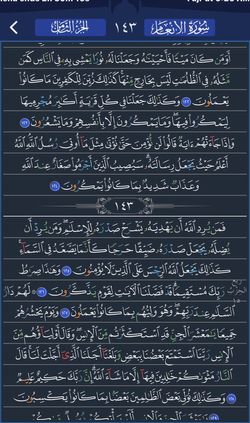 سورة الأنعام ١٤٣ الجزء الثامن
أَوَمَن كَانَ مَيْتًا فَأَحْيَيْنَٰهُ وَجَعَلْنَا لَهُۥ نُورًا يَمْشِى بِهِۦ فِى ٱلنَّاسِ كَمَن
مَّثَلُهُۥ فِى ٱلظُّلُمَٰتِ لَيْسَ بِخَارِجٍ مِّنْهَا كَذَٰلِكَ زُيِّنَ لِلْكَٰفِرِينَ مَا كَانُوا۟
يَعْمَلُونَ ١٢٢ وَكَذَٰلِكَ جَعَلْنَا فِى كُلِّ قَرْيَةٍ أَكَٰبِرَ مُجْرِمِيهَا
لِيَمْكُرُوا۟ فِيهَا وَمَا يَمْكُرُونَ إِلَّا بِأَنفُسِهِمْ وَمَا يَشْعُرُونَ ١٢٣
وَإِذَا جَآءَتْهُمْ ءَايَةٌ قَالُوا۟ لَن نُّؤْمِنَ حَتَّىٰ نُؤْتَىٰ مِثْلَ مَآ أُوتِىَ رُسُلُ ٱللَّهِ ٱللَّهُ
أَعْلَمُ حَيْثُ يَجْعَلُ رِسَالَتَهُۥ سَيُصِيبُ ٱلَّذِينَ أَجْرَمُوا۟ صَغَارٌ عِندَ ٱللَّهِ
وَعَذَابٌ شَدِيدٌۢ بِمَا كَانُوا۟ يَمْكُرُونَ ١٢٤
١٤٣
فَمَن يُرِدِ ٱللَّهُ أَن يَهْدِيَهُۥ يَشْرَحْ صَدْرَهُۥ لِلْإِسْلَٰمِ وَمَن يُرِدْ أَن
يُضِلَّهُۥ يَجْعَلْ صَدْرَهُۥ ضَيِّقًا حَرَجًا كَأَنَّمَا يَصَّعَّدُ فِى ٱلسَّمَآءِ
كَذَٰلِكَ يَجْعَلُ ٱللَّهُ ٱلرِّجْسَ عَلَى ٱلَّذِينَ لَا يُؤْمِنُونَ ١٢٥ وَهَٰذَا صِرَٰطُ
رَبِّكَ مُسْتَقِيمًا قَدْ فَصَّلْنَا ٱلْءَايَٰتِ لِقَوْمٍ يَذَّكَّرُونَ ١٢٦ لَهُمْ دَارُ
ٱلسَّلَٰمِ عِندَ رَبِّهِمْ وَهُوَ وَلِيُّهُم بِمَا كَانُوا۟ يَعْمَلُونَ ١٢٧ وَيَوْمَ يَحْشُرُهُمْ
جَمِيعًا يَٰمَعْشَرَ ٱلْجِنِّ قَدِ ٱسْتَكْثَرْتُم مِّنَ ٱلْإِنسِ وَقَالَ أَوْلِيَآؤُهُم مِّنَ
ٱلْإِنسِ رَبَّنَا ٱسْتَمْتَعَ بَعْضُنَا بِبَعْضٍ وَبَلَغْنَآ أَجَلَنَا ٱلَّذِىٓ أَجَّلْتَ لَنَا قَالَ
ٱلنَّارُ مَثْوَىٰكُمْ خَٰلِدِينَ فِيهَآ إِلَّا مَا شَآءَ ٱللَّهُ إِنَّ رَبَّكَ حَكِيمٌ عَلِيمٌ
١٢٨ وَكَذَٰلِكَ نُوَلِّى بَعْضَ ٱلظَّٰلِمِينَ بَعْضًۢا بِمَا كَانُوا۟ يَكْسِبُونَ